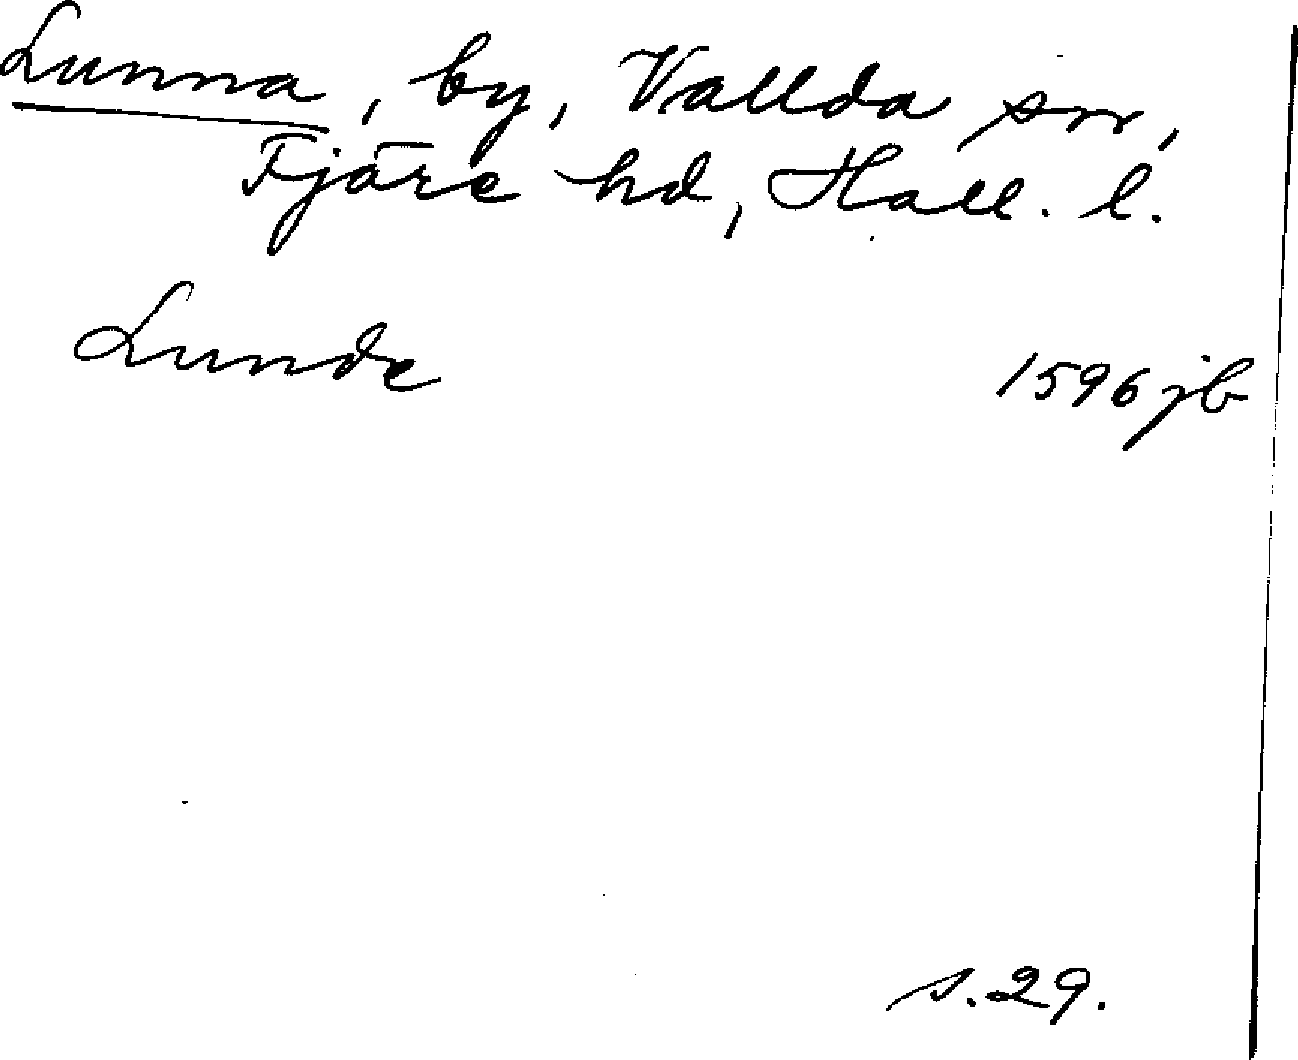 Lunna, by, Vallda sn,
Fjäre hd, Hall. l.
Lunde 1596 jb
s. 29.